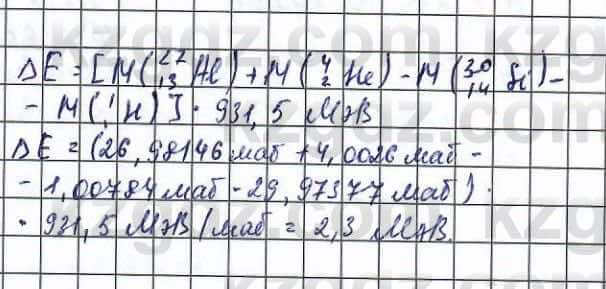 ΔE = [M(²⁷₁₃Al) + M(⁴₂He) - M(³⁰₁₄Si) -
- M(¹₁H)] · 931,5 МэВ
ΔE = (26,98146 маб + 4,0026 маб -
- 1,00784 маб - 29,97377 маб) ·
· 931,5 МэВ/маб = 2,3 МэВ.